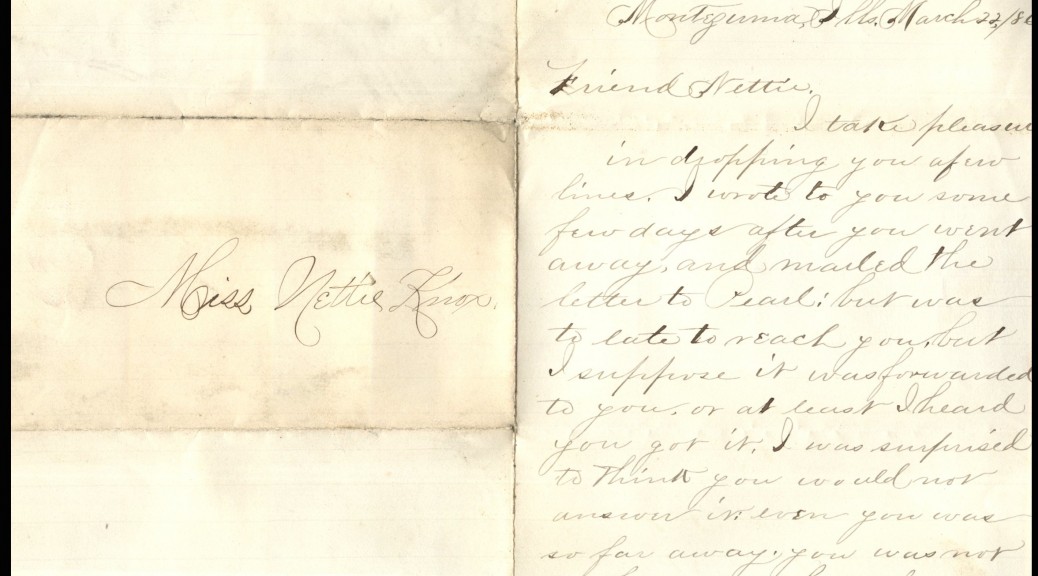 Miss Nettie Knox.
Montezuma, Ills. March 22,/8
Friend Nettie.
I take pleasure
in dropping you a few
lines. I wrote to you some
few days after you went
away, and mailed the
letter to Pearl; but was
to late to reach you, but
I suppose it was forwarded
to you, or at least I heard
you got it. I was surprised
to think you would not
answer it; even you was
so far away, you was not